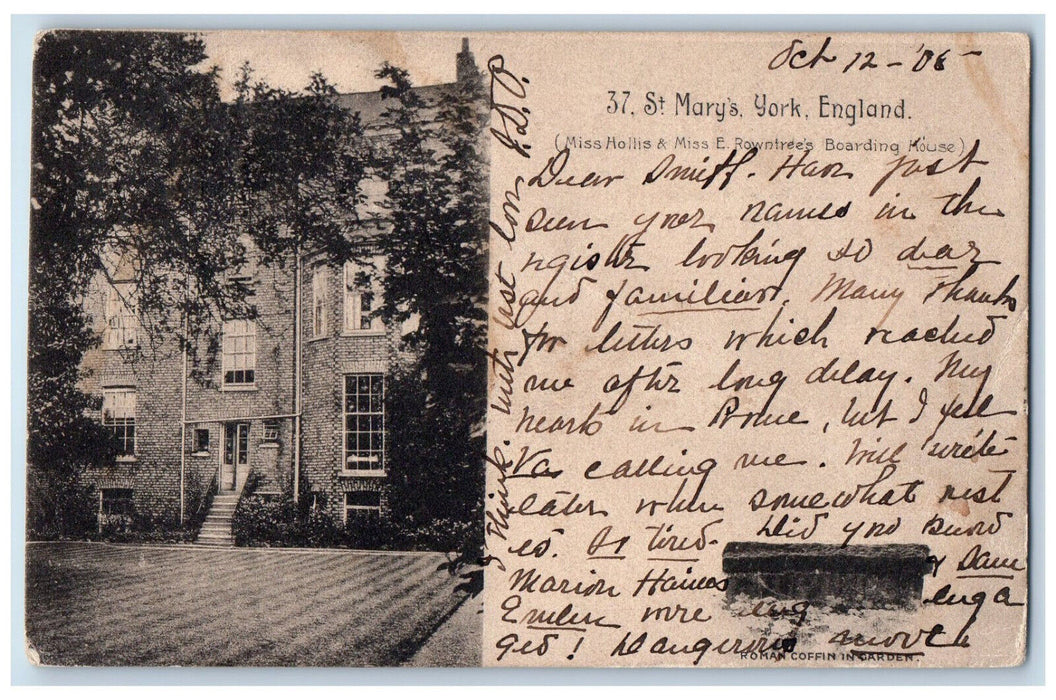 Oct 12 - '06
37, St Mary's, York, England.
(Miss Hollis & Miss E. Rowntree's Boarding House)
Dear Smith. Have just
seen your names in the
register looking so dear
and familiar. Many thanks
for letters which reached
me after long delay. My
heart's in Rome, but I feel
calling me. Will write
later when somewhat rest
ed. So tired. Did you know
Marion Haines & Sam
Emlen were eng enga
ged! Dangerous move
ROMAN COFFIN IN GARDEN.
I think. With best love